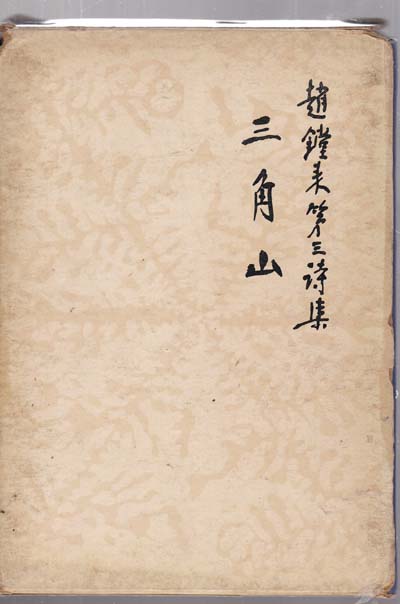 趙鏜来第三詩集
三角山